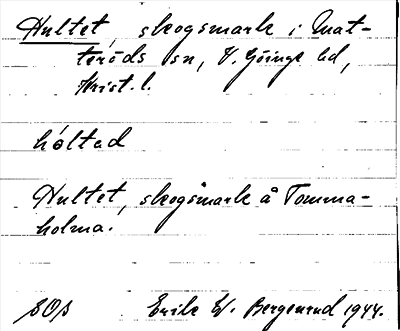 Hultet, skogsmark i Mat-
teröds sn, V. Göinge hd,
Krist. l.
hóltad
Hultet, skogsmark å Tomma-
holma.
SOB Erik W. Bergenrud 1944.